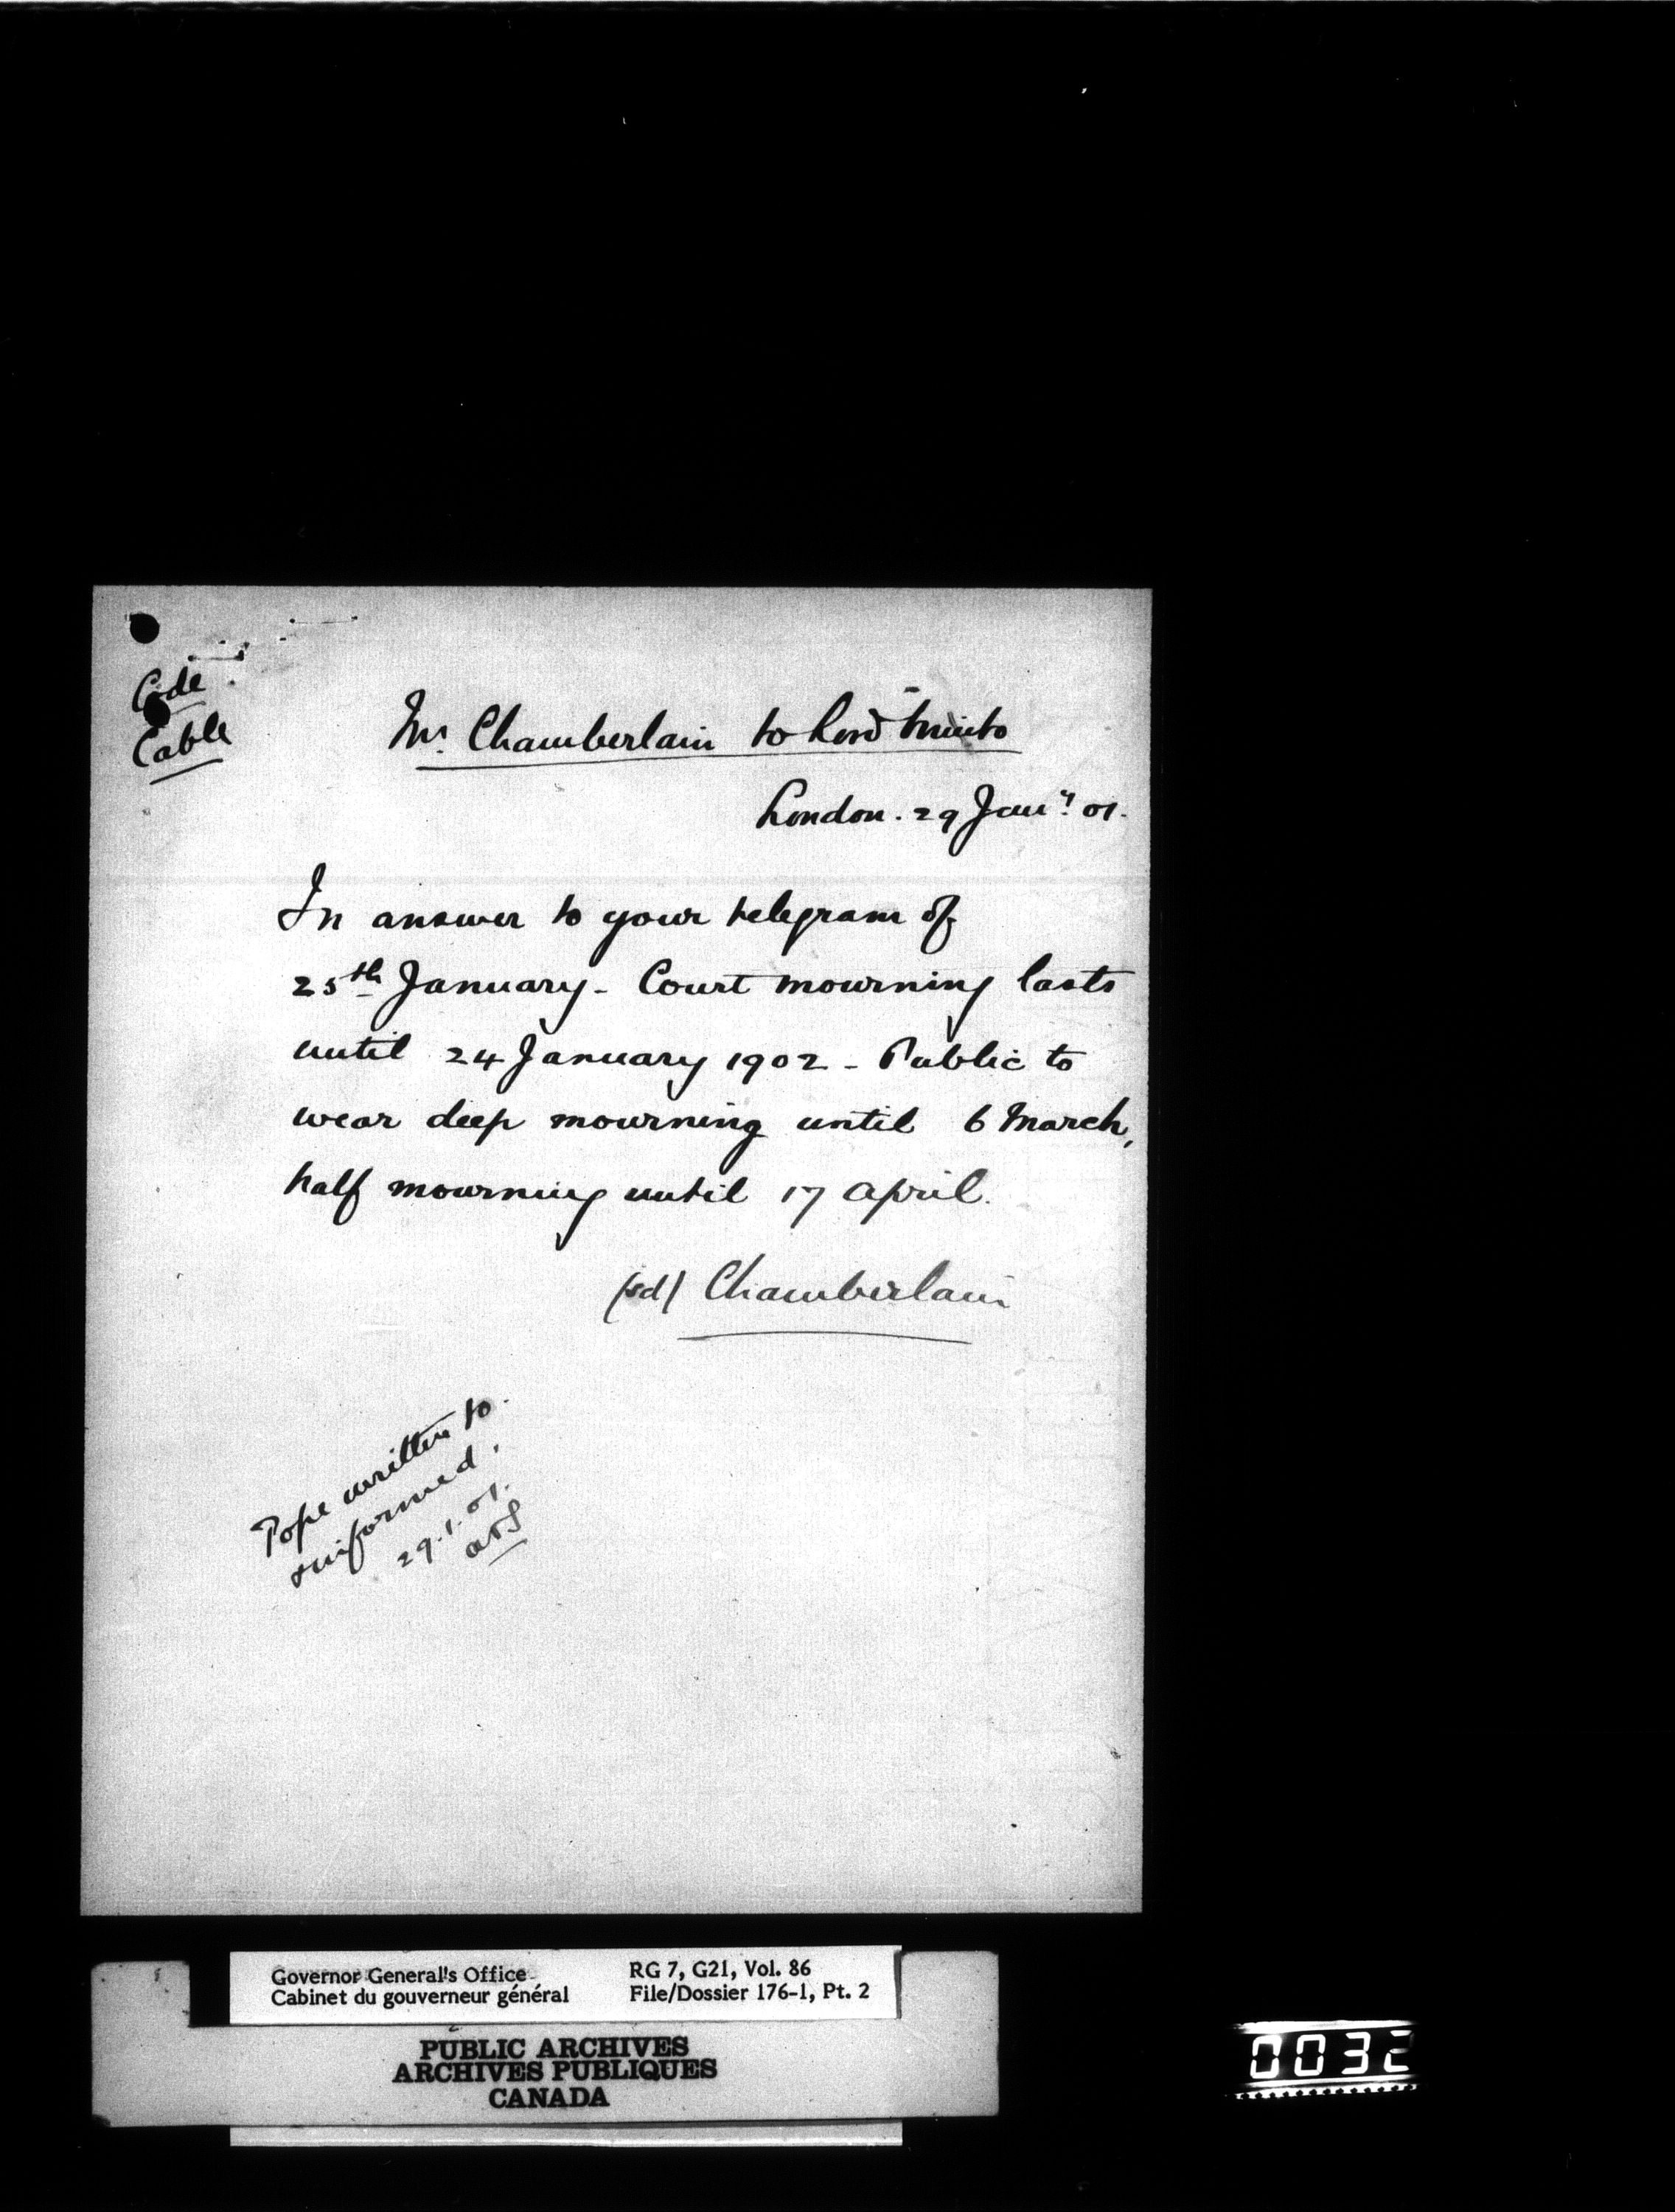 Code
Cable
Mr. Chamberlain to Lord Minto
London. 29 Jany. 01.
In answer to your telegram of
25th January - Court mourning lasts
until 24 January 1902 - Public to
wear deep mourning until 6 March,
half mourning until 17 April.
(sd) Chamberlain
Pope written to
& informed.
29.1.01.
Governor General's Office
Cabinet du gouverneur général
RG 7, G21, Vol. 86
File/Dossier 176-1, Pt. 2
PUBLIC ARCHIVES
ARCHIVES PUBLIQUES
CANADA
0032